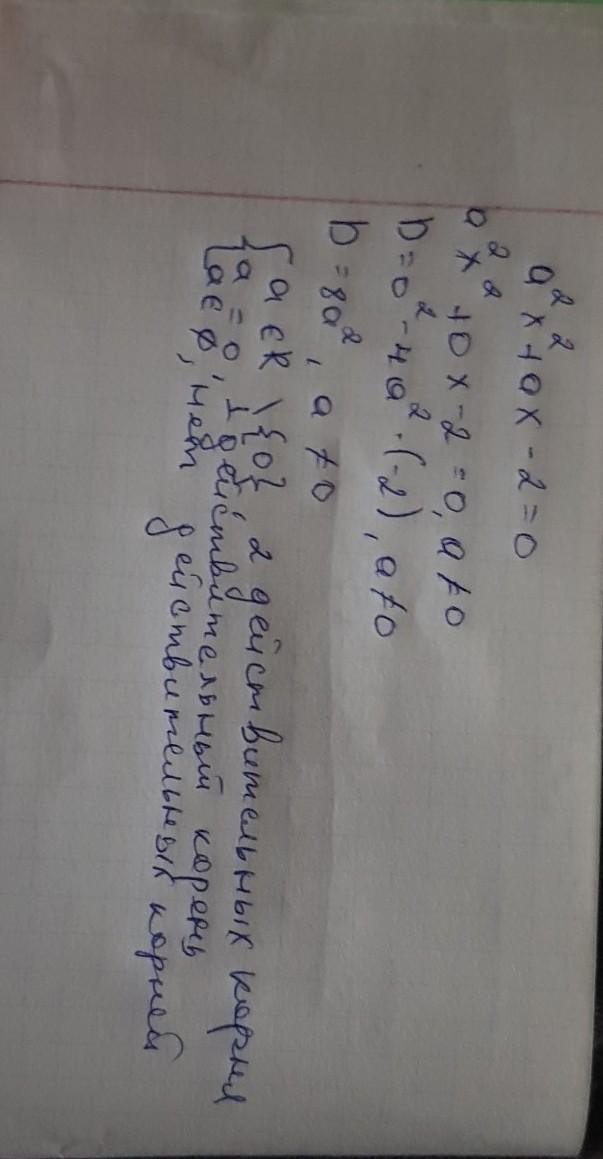 a²x²+0x-2=0
a²x²+0x-2=0, a≠0
D=0²-4a²·(-2), a≠0
D=8a², a≠0
{a∈R\{0}, 2 действительных корня
{a=0, 1 действительный корень
{a∈∅, нет действительных корней